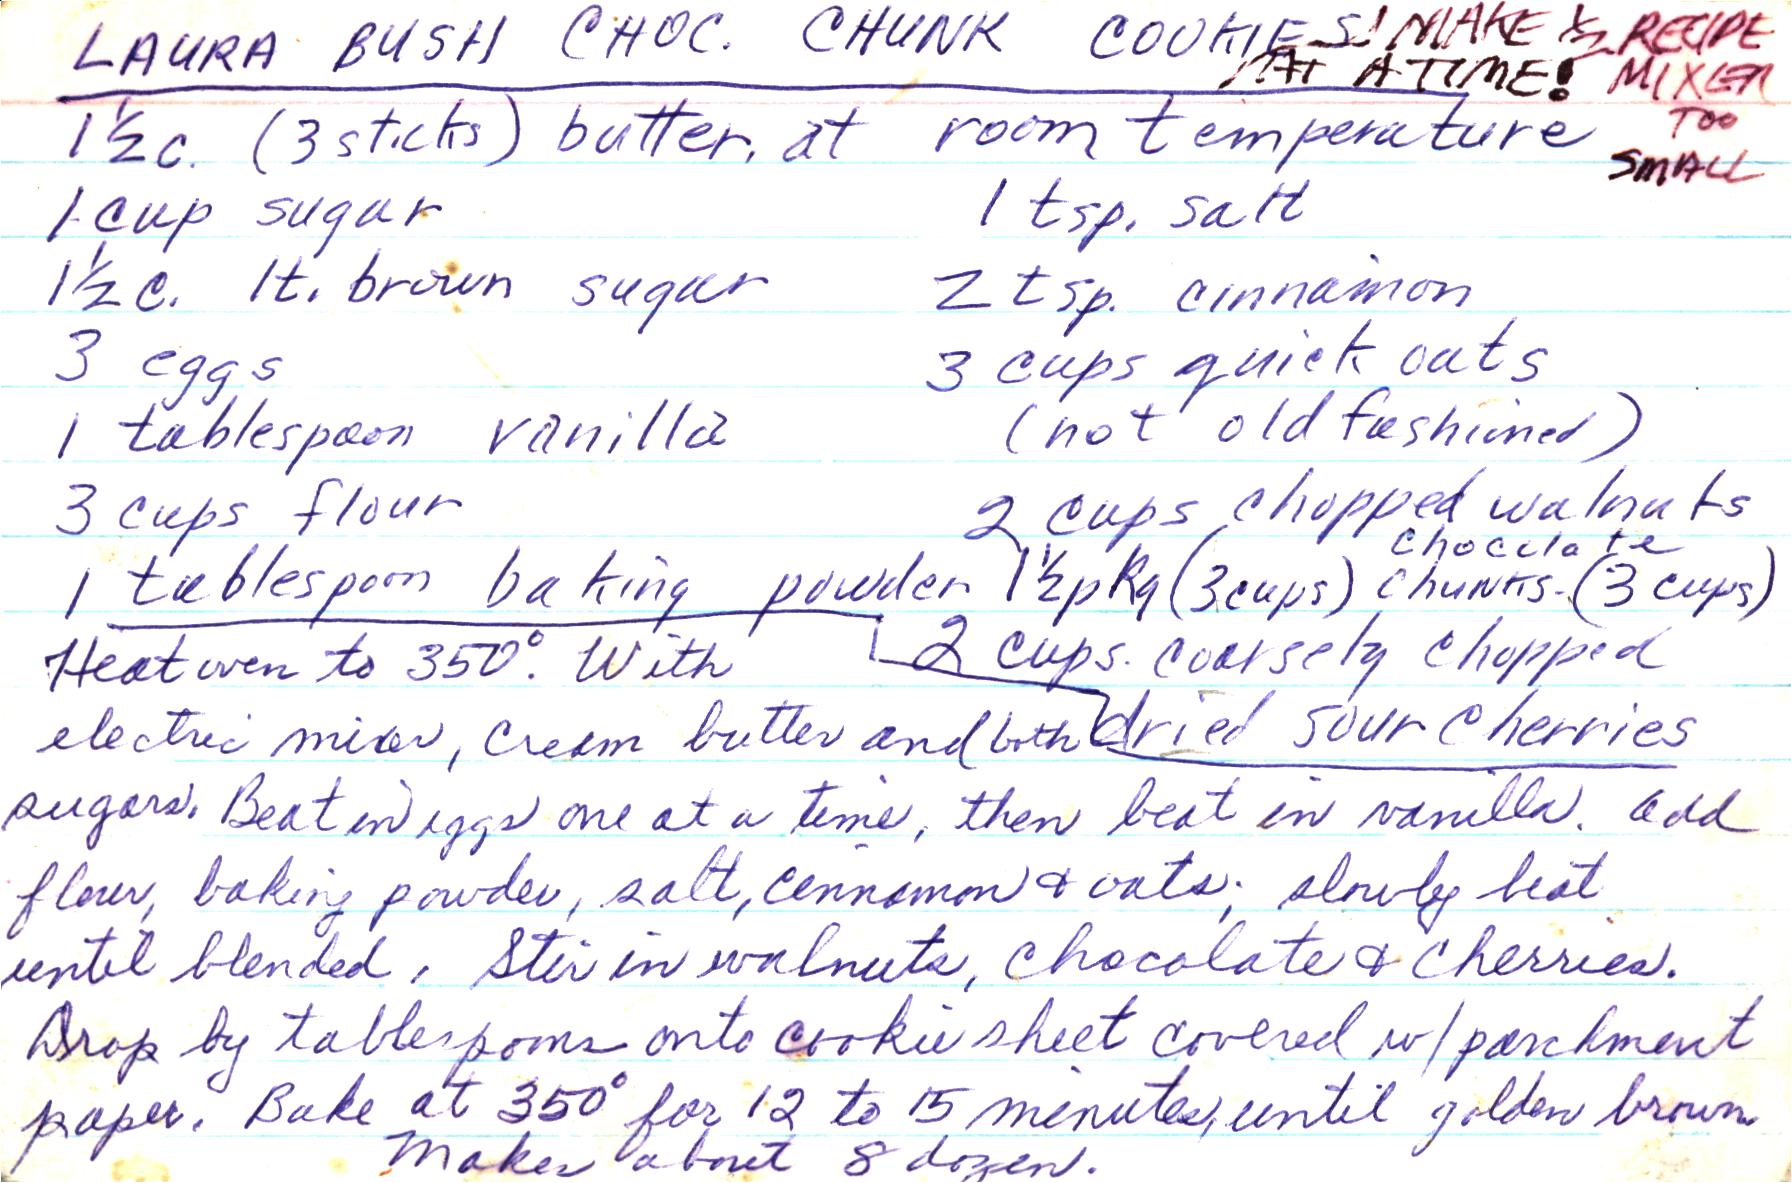 LAURA BUSH CHOC. CHUNK COOKIES! MAKE ½ RECIPE
AT A TIME! MIXER
TOO
SMALL
1½ c. (3 sticks) butter, at room temperature
1 cup sugar
1½ c. lt. brown sugar
3 eggs
1 tablespoon vanilla
3 cups flour
1 tablespoon baking powder
1 tsp. salt
2 tsp. cinnamon
3 cups quick oats
(not old fashioned)
2 cups chopped walnuts
chocolate
1½ pkg (3 cups) chunks. (3 cups)
2 cups. coarsely chopped
dried sour cherries
Heat oven to 350°. With
electric mixer, cream butter and both
sugars. Beat in eggs one at a time, then beat in vanilla. Add
flour, baking powder, salt, cinnamon & oats; slowly beat
until blended. Stir in walnuts, chocolate & cherries.
Drop by tablespoons onto cookie sheet covered w/ parchment
paper. Bake at 350° for 12 to 15 minutes, until golden brown.
Makes about 8 dozen.